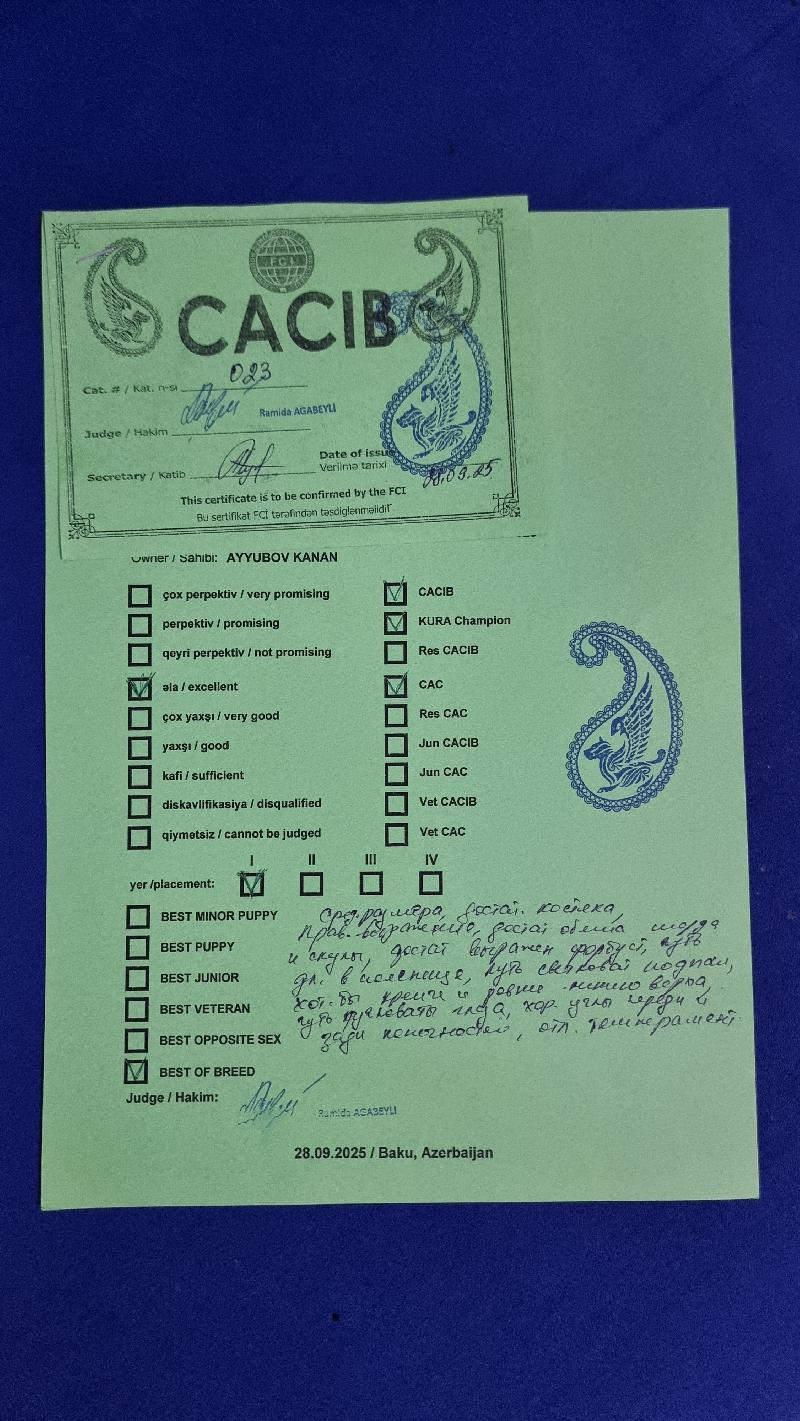 FCI
CACIB
Cat. # / Kat. n-si 023
Ramida AGABEYLI
Judge / Hakim
Date of issue
Secretary / Katib
Verilmə tarixi
28.09.25
This certificate is to be confirmed by the FCI
Bu sertifikat FCİ tərəfindən təsdiqlənməlidir
Owner / Sahibi: AYYUBOV KANAN
çox perpektiv / very promising
CACIB
perpektiv / promising
KURA Champion
qeyri perpektiv / not promising
Res CACIB
əla / excellent
CAC
çox yaxşı / very good
Res CAC
yaxşı / good
Jun CACIB
kafi / sufficient
Jun CAC
diskavlifikasiya / disqualified
Vet CACIB
qiymetsiz / cannot be judged
Vet CAC
I II III IV
yer /placement:
BEST MINOR PUPPY
BEST PUPPY
BEST JUNIOR
BEST VETERAN
BEST OPPOSITE SEX
BEST OF BREED
сред. размера, достат. костяка,
прав. выражение, достат. морда
и скулы, достат выражен форбуст, чуть
дл. в пояснице, чуть подпал,
хот. бы крепче и ровнее линию верха,
чуть глаза, хор. углы переди и
зади конечностей, отл. темперамент
Judge / Hakim:
Ramida AGABEYLI
28.09.2025 / Baku, Azerbaijan